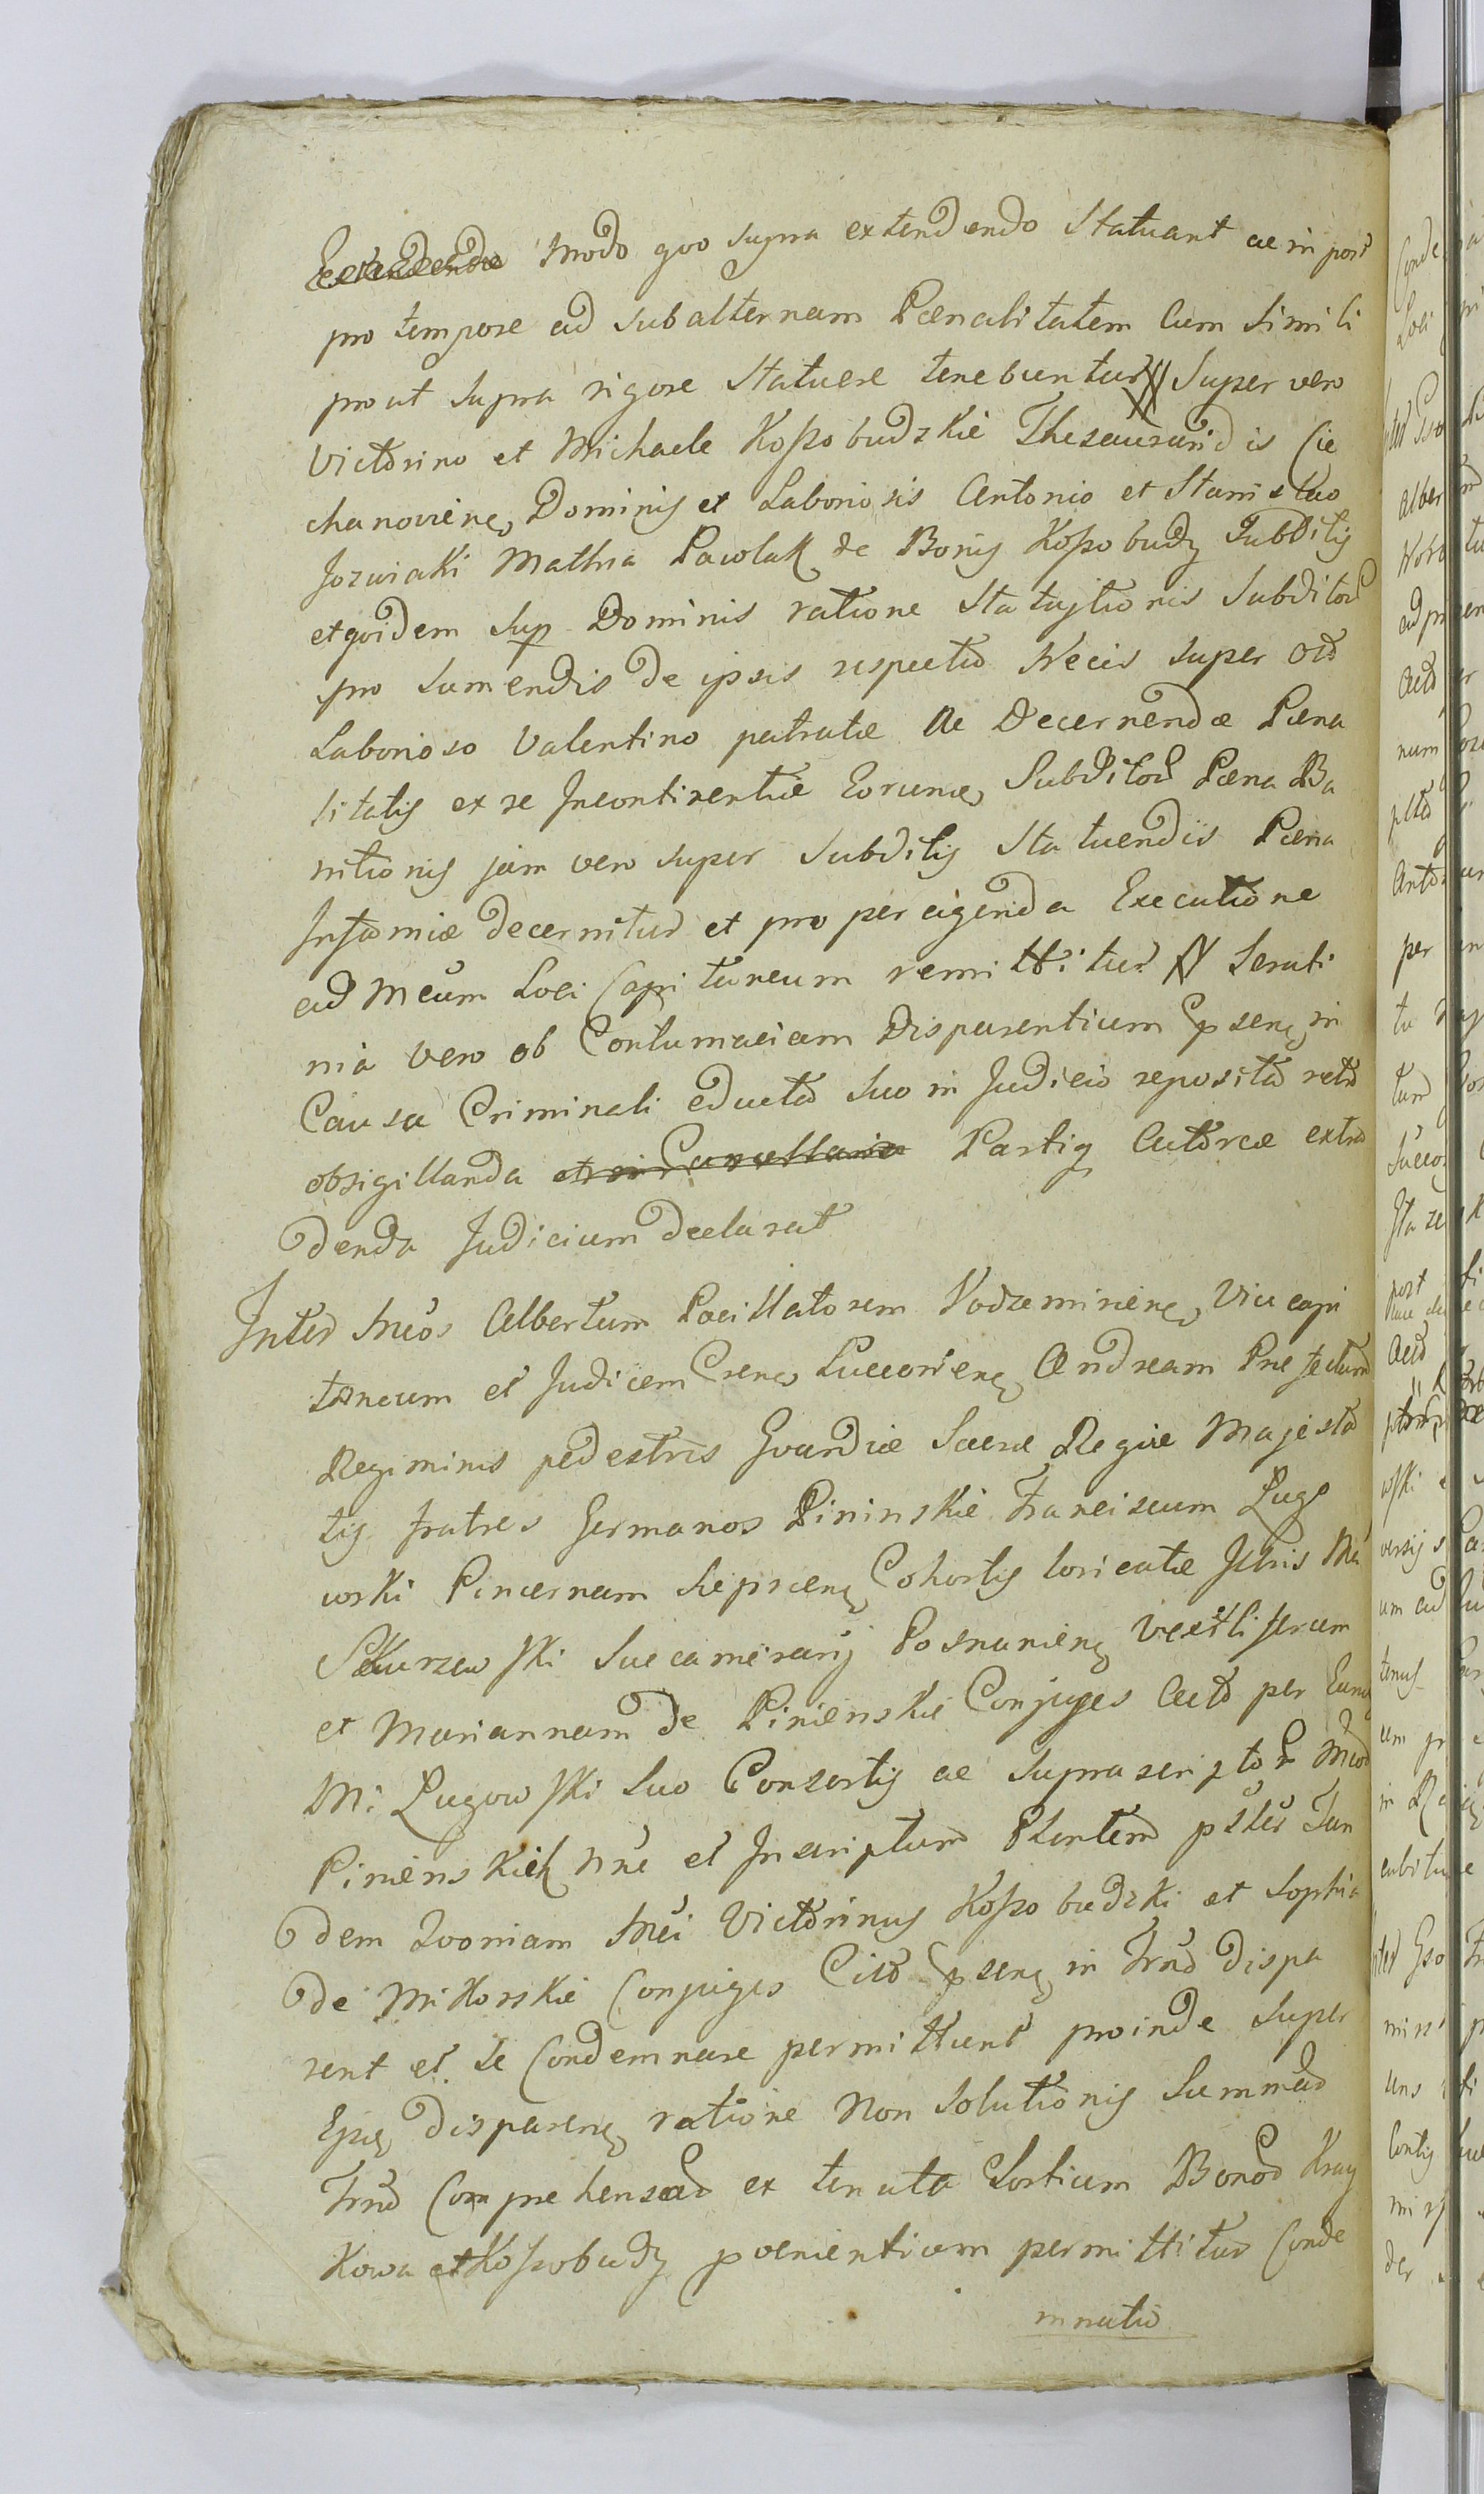 Extendendae Modo quo supra extendendo Statuant ac in post
pro tempore ad subalternam Paenalitatem Cum Simili
prout Supra rigore Statuere tenebuntur // Super vero
Victorino et Michaele Koszobudzkie Thesaurarid is Cie
chanoviens Dominis et Laboriosis Antonio et Stanislao
Jozwiaki Mathia Pawlak de Bonis Koszobudy Subditis
et quidem Sup Dominis ratione Statuitionis Subditor
pro Sumendis de ipsis respectu Necis super olo
Laborioso Valentino patratae ac Decernendae Paena
litatis ex re Incontinentiae Eorum Subditor Paena Ba
nitionis jam vero super Subditis Statuendis Paena
Infamiae decernitur et pro peragenda Executione
ad Meum Loci Capitaneum remittitur // Scruti
nia vero ob Contumaciam Disparentium Cpsens in
Causa Criminali educta Suo in Judicio reposita
obsigillanda et in Cancellaria Partis Actoreae extra
denda Judicium declarat
Inter Mcos Albertum Pocillatorem Vice capi
taneum et Judicem Csens Andream Praefectum
Regiminis pedestris Gvardiae Sacrae Regiae Majesta
tis fratres Germanos Pininskie Franciscum Lugo
wski Pincernam Cohortis loricatae Illris Mci
Skurzewski Succamerarij Posnaniens Vexilliferum
et Mariannam de Pinienskie Conjuges Act per
M: Lugowski Suo Consortis ac suprascriptor Mcor
Pinienskich Nne et Inscriptum
dem Mci Victorinus Koszobudzki et Sophia
de Mikorskie Conjuges Cit Cpsens in Trno dispa
rent et Se Condemnare permittunt proinde Super
Ejus disparens ratione Non Solutionis Summar
Trno Comprehensar ex tenuta Sortium Bonor Kray
kowa et Koszobudy provenientium permittitur Conde
mnatio